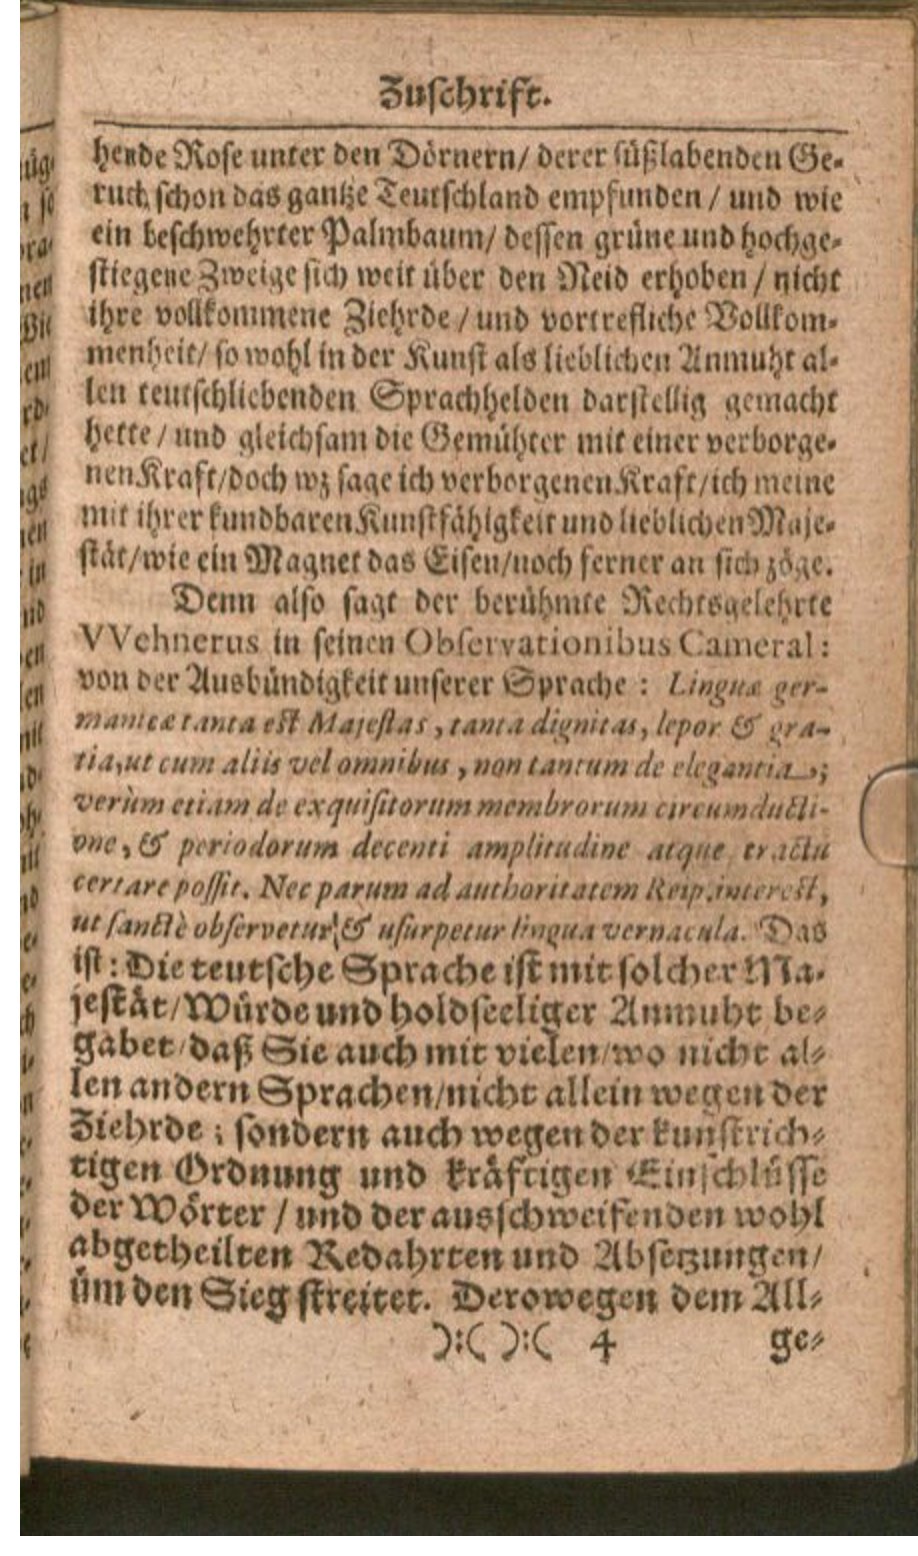 Zuſchrift.
hende Roſe unter den Dörnern/ derer ſüßlabenden Ge-
ruch ſchon das gantze Teutſchland empfunden / und wie
ein beſchwehrter Palmbaum/ deſſen grüne und hochge-
ſtiegene Zweige ſich weit über den Neid erhoben / nicht
ihre vollkommene Ziehrde / und vortrefliche Vollkom-
menheit/ ſo wohl in der Kunſt als lieblichen Anmuht al-
len teutſchliebenden Sprachhelden darſtellig gemacht
hette / und gleichſam die Gemühter mit einer verborge-
nen Kraft/doch wz ſage ich verborgenen Kraft/ich meine
mit ihrer kundbaren Kunſtfähigkeit und lieblichen Maje-
ſtät/wie ein Magnet das Eiſen/noch ferner an ſich zöge.
Denn alſo ſagt der berühmte Rechtsgelehrte
VVehnerus in ſeinen Obſervationibus Cameral:
von der Ausbündigkeit unſerer Sprache : Linguæ ger-
manicæ tanta eſt Majeſtas, tanta dignitas, lepor & gra-
tia, ut cum aliis vel omnibus, non tantum de elegantia;
verùm etiam de exquiſitorum membrorum circumducti-
one, & periodorum decenti amplitudine atque tractu
certare poſſit. Nec parum ad authoritatem Reip. intereſt,
ut ſanctè obſervetur & uſurpetur lingua vernacula. Das
iſt: Die teutſche Sprache iſt mit ſolcher Ma-
jeſtät/Würde und holdſeeliger Anmuht be-
gabet/daß Sie auch mit vielen/wo nicht al-
len andern Sprachen/nicht allein wegen der
Ziehrde ; ſondern auch wegen der kunſtrich-
tigen Ordnung und kräftigen Einſchlüſſe
der Wörter / und der ausſchweifenden wohl
abgetheilten Redahrten und Abſetzungen/
üm den Sieg ſtreitet. Derowegen dem All-
):( ):( 4 ge-